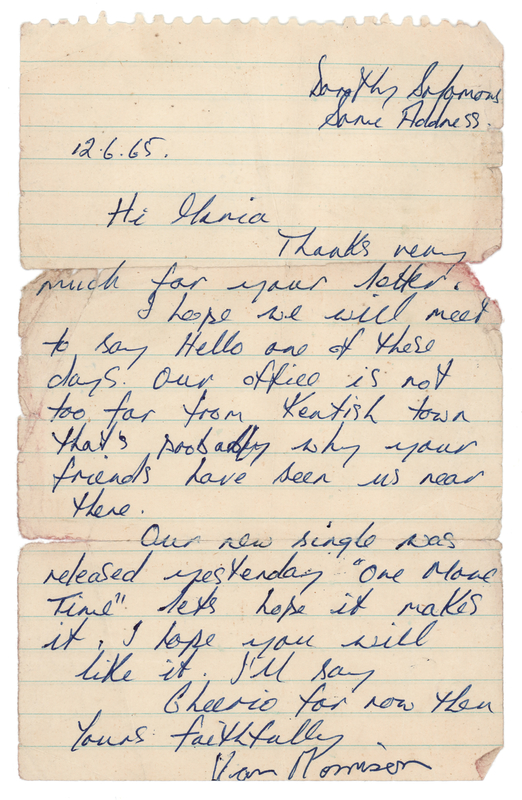 Dorothy Solomons
Same Address.
12.6.65.
Hi Maria
Thanks very
much for your letter.
I hope we will meet
to say Hello one of these
days. Our office is not
too far from Kentish town
that's probably why your
friends have seen us near
there.
Our new single was
released yesterday "One More
Time" lets hope it makes
it. I hope you will
like it. I'll say
Cheerio for now then
Yours faithfully
Van Morrison